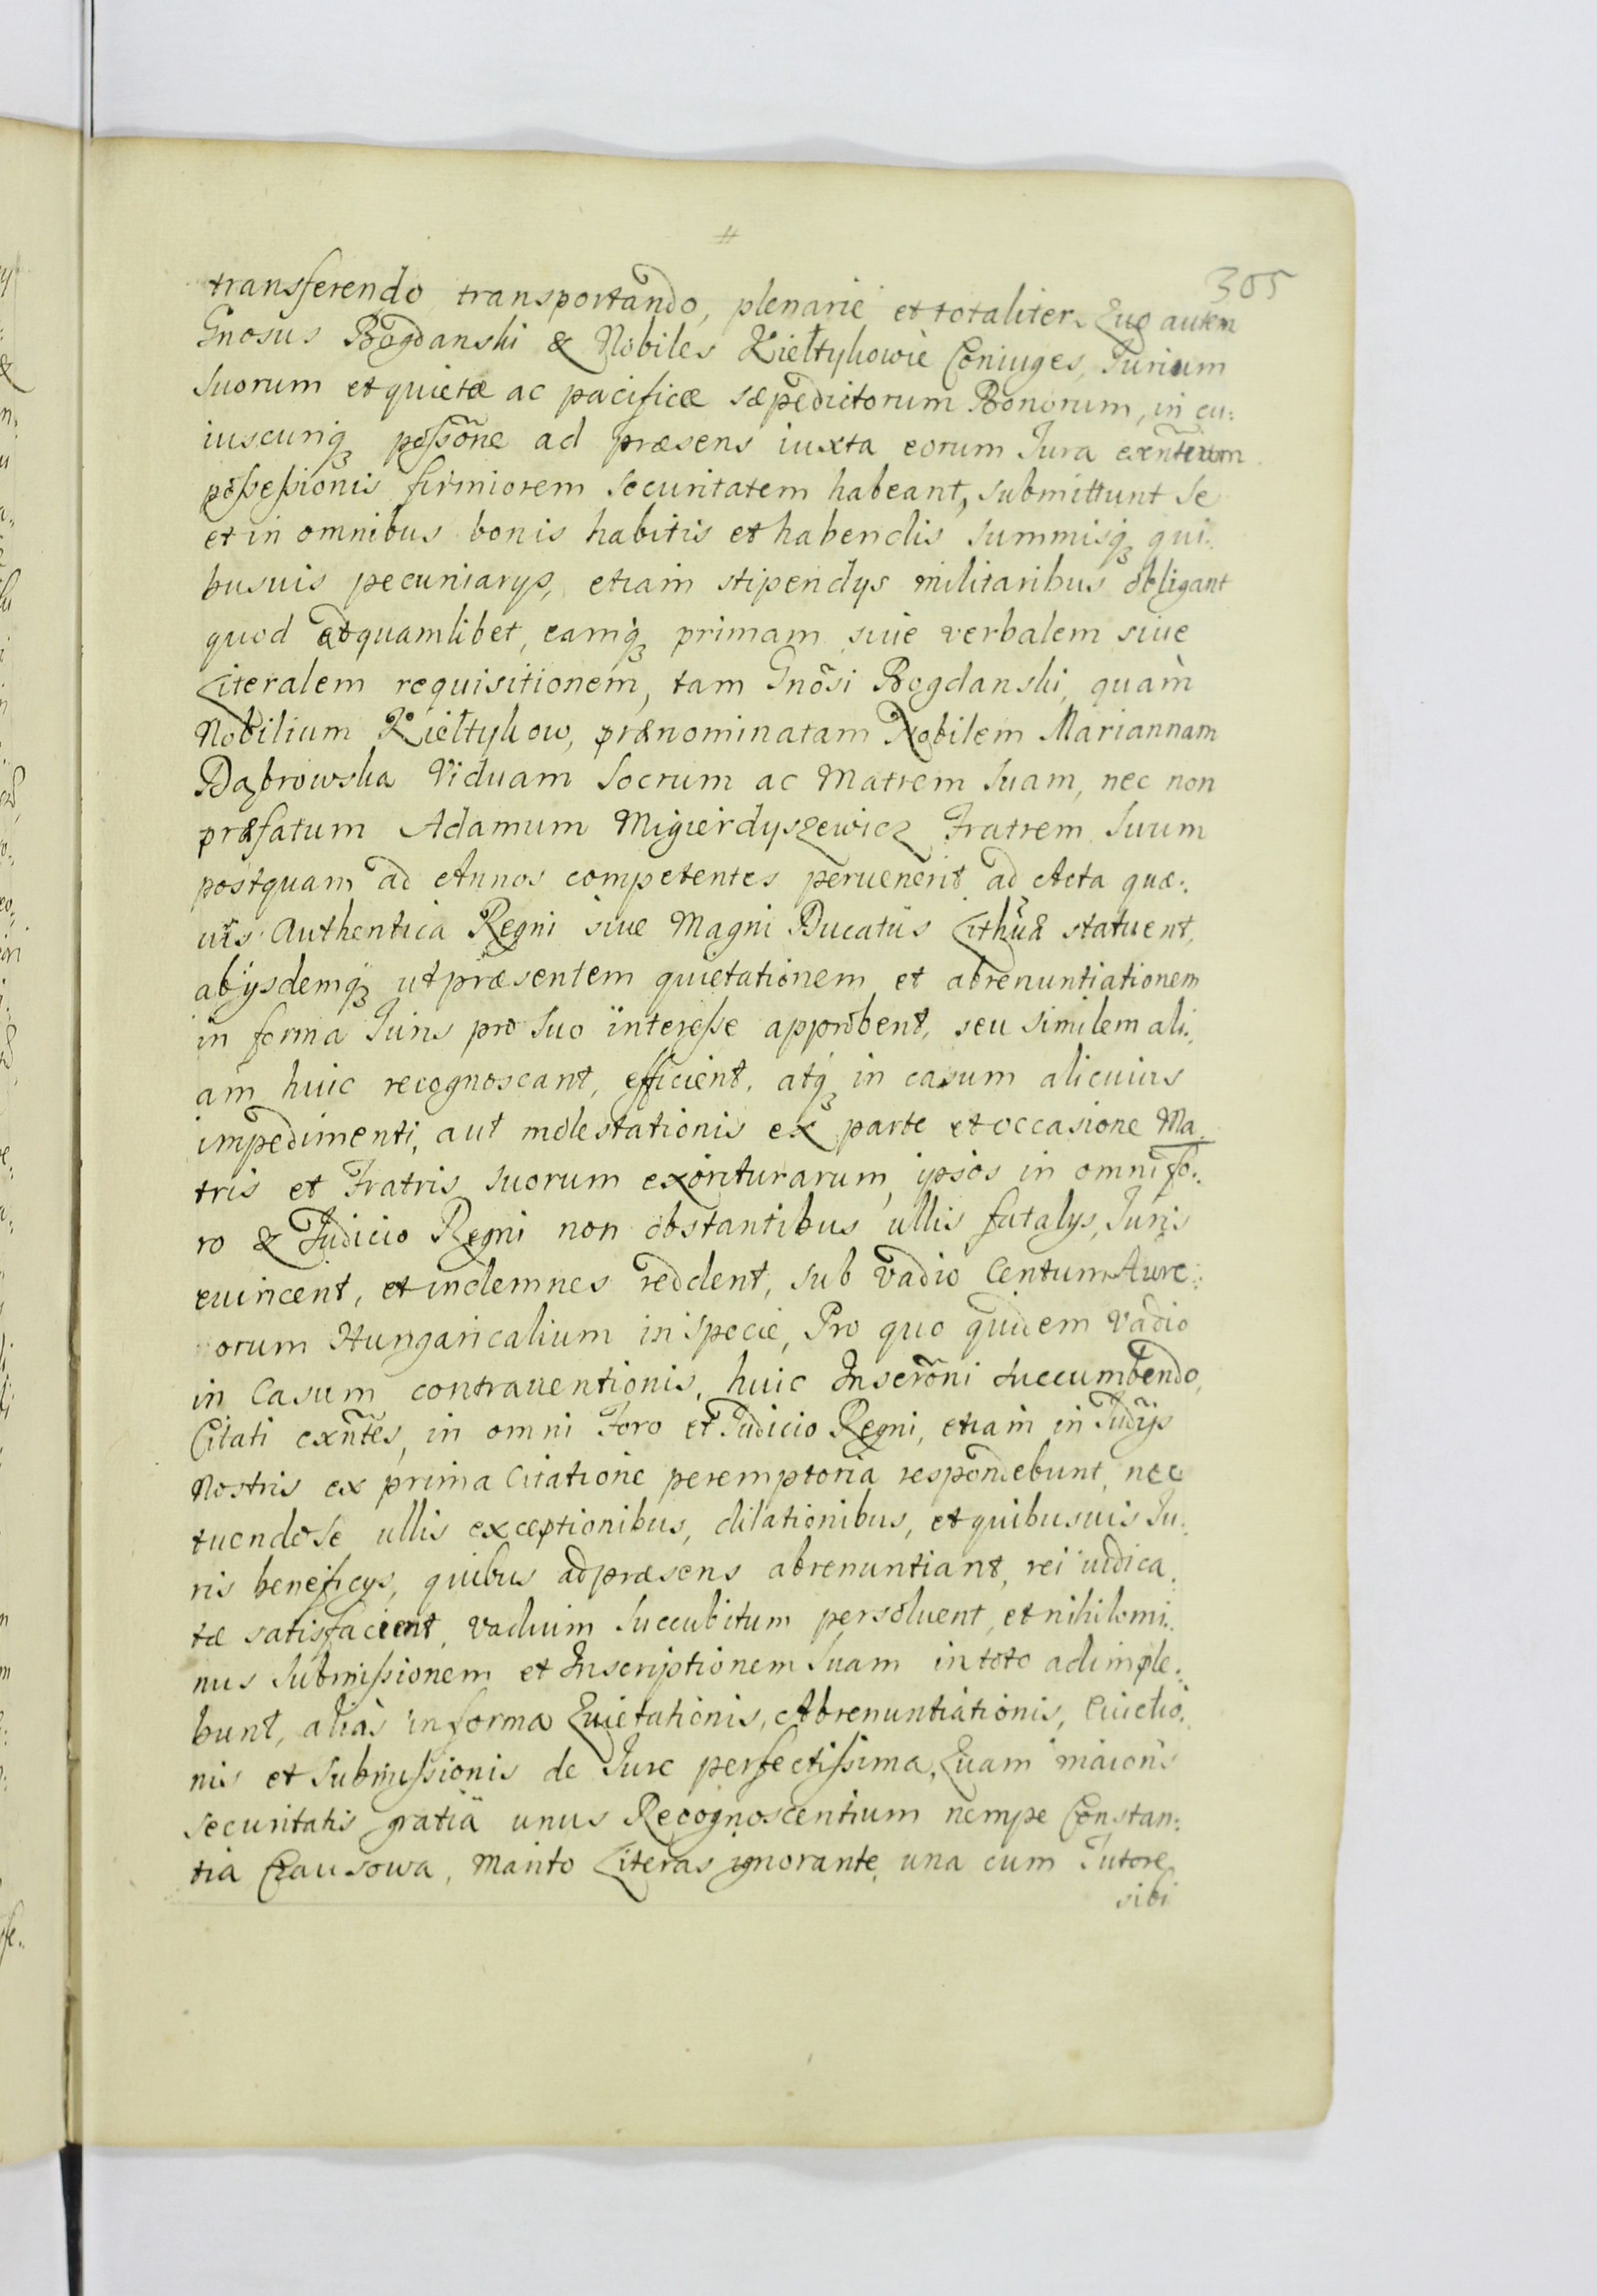 305
transferendo, transportando, plenarie et totaliter. Quo autem
Gnosus Bogdanski & Nobiles Kiełtykowie Coniuges, Iurium
Suorum et quietæ ac pacificæ sæpedictorum Bonorum, in cu:
iuscunq₃ poßõne ad præsens iuxta eorum Iura exñtium
poßeßionis firmiorem securitatem habeant, submittunt se
et in omnibus bonis habitis et habendis summisq₃ qui:
busuis pecuniarys, etiam stipendys militaribus obligant
quod ad quamlibet, eamq₃ primam siue verbalem siue
Literalem requisitionem, tam Gnõsi Bogdanski, quàm
Nobilium Kiełtykow, prænominatam Nobilem Mariannam
Dąbrowska Viduam Socrum ac Matrem suam, nec non
præfatum Adamum Migierdyszewicz Fratrem Suum
postquam ad Annos competentes peruenerit ad Acta quæ:
uis Authentica Regni siue Magni Ducatûs Lithũæ statuent,
abijsdemq₃ ut præsentem quietationem et abrenuntiationem
in forma Iuris pro suo interesse approbent, seu similem ali:
am huic recognoscant, efficient, atq₃ in casum alicuius
impedimenti, aut molestationis ex parte et occasione Ma
tris et Fratris suorum exoriturarum, ipsos in omni fo:
ro & Iudicio Regni non obstantibus ullis fatalys, Iuris
euincent, et indemnes reddent, sub vadio Centum Aure:
orum Hungaricalium in specie, Pro quo quidem vadio
in Casum contrauentionis, huic Inscrõni succumbendo,
Citati exñtes, in omni Foro et Iudicio Regni, etiam in Iudijs
Nostris ex prima Citatione peremptoria respondebunt, nec
tuendo se ullis exceptionibus, dilationibus, et quibusuis Iu:
ris beneficys, quibus ad præsens abrenuntiant, rei iudica:
tæ satisfacient, vadium succubitum persoluent, et nihilomi:
nus Submißionem et Inscriptionem Suam in toto adimple:
bunt, aliàs in forma Quietationis, Abrenuntiationis, Euictio:
nis et submißionis de Iure perfectißima, Quam maioris
securitatis gratiâ unus Recognoscentium nempe Constan:
tia Czausowa, Marito Literas ignorante, una cum Tutore
sibi